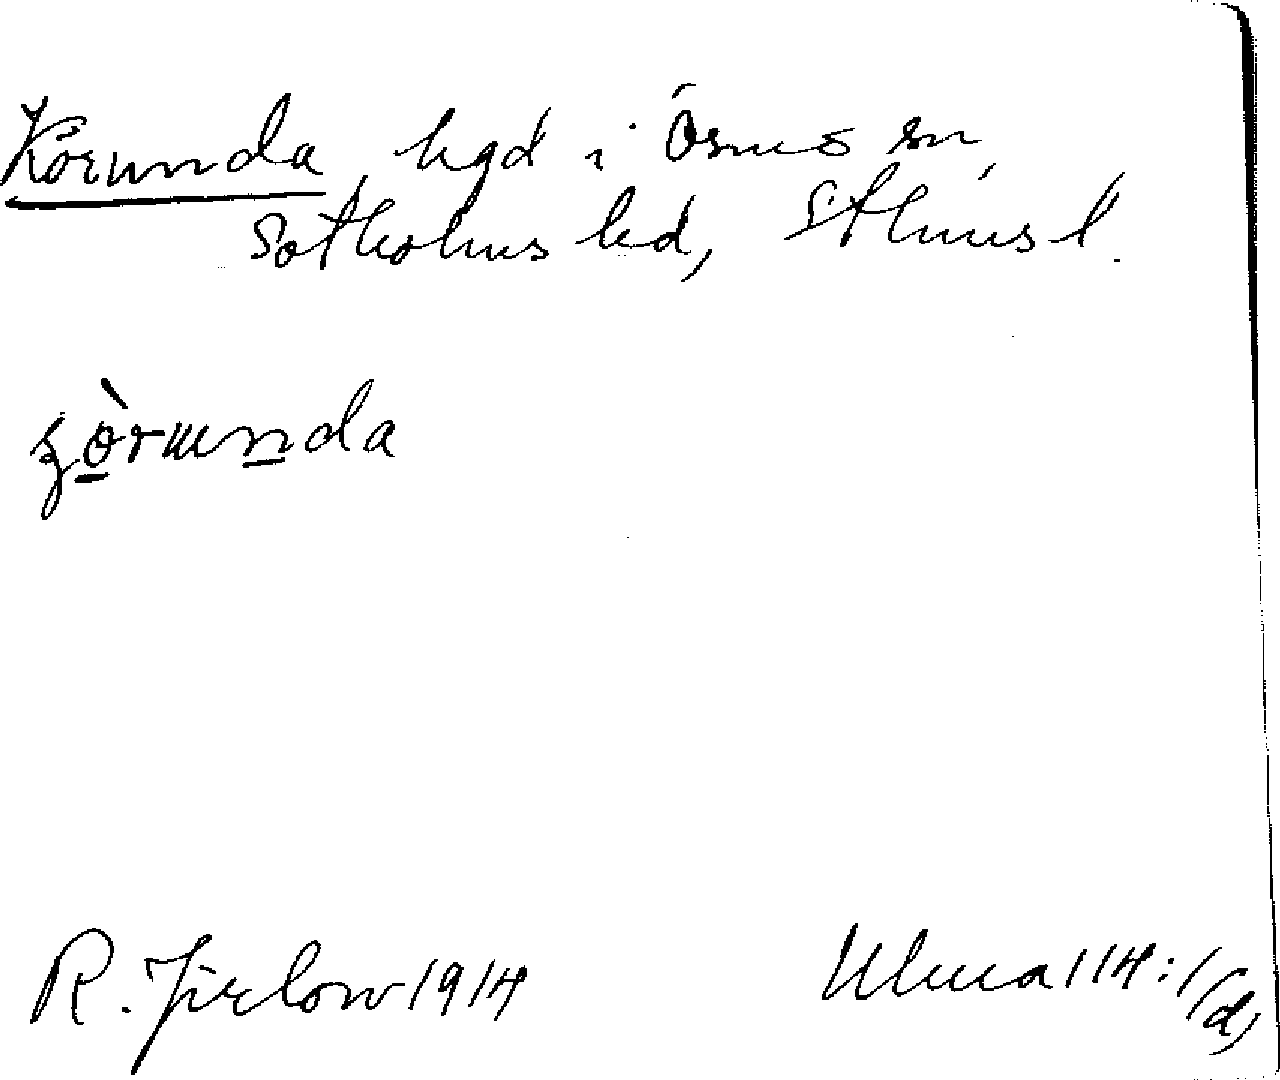 Körunda, hgd i Ösmo sn,
Sotholms hd, Sthms l.
R. Jirlow 1914
Uluua 114:1(d)